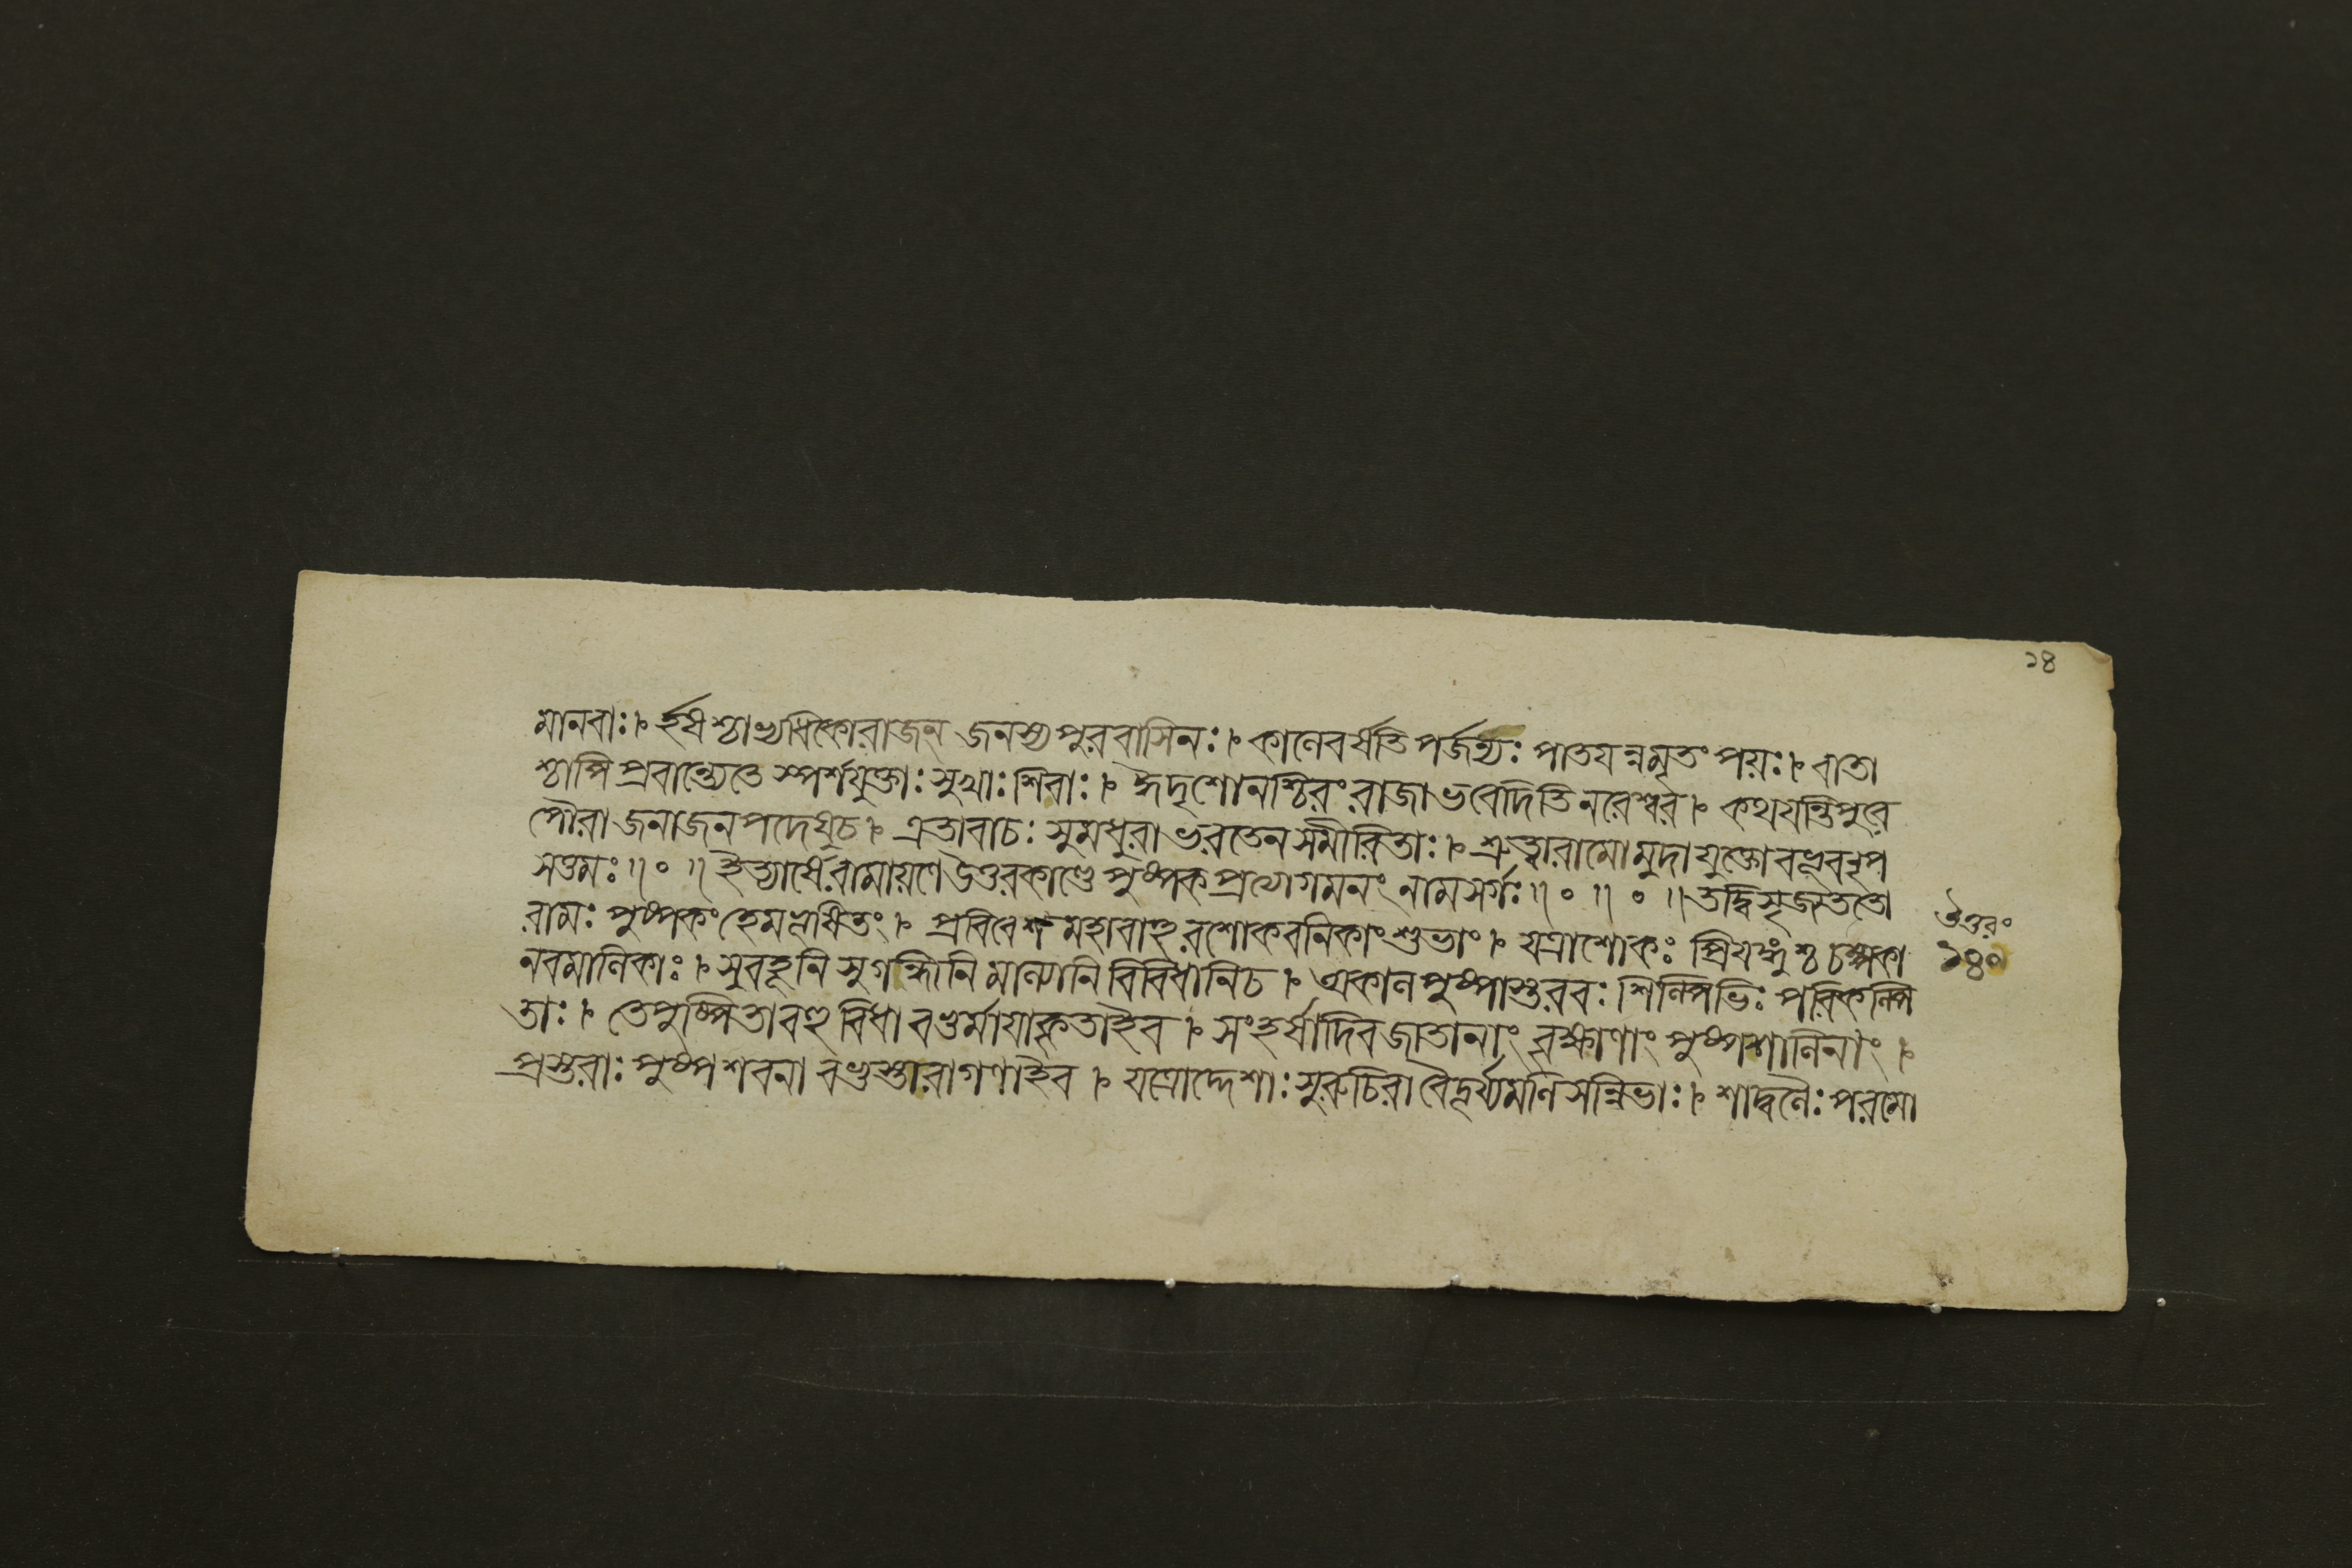 ২৪
মানবাঃ। হর্ষশ্চাভ্যধিকোরাজন্ জনস্য পুরবাসিনঃ। কালেবর্ষতি পর্জন্যঃ পাতয়ন্নমৃতং পয়ঃ। বাতা
শ্চাপি প্রবান্ত্যেতে স্পর্শযুক্তাঃ সুখাঃ শিবাঃ। ঈদৃশোনশ্চিরং রাজা ভবেদিতি নরেশ্বর। কথয়ন্তিপুরে
পৌরা জনাজনপদেষুচ। এতাবাচঃ সুমধুরা ভরতেন সমীরিতাঃ। শ্রুত্বারামোমুদাযুক্তোবভূবনৃপ
সত্তমঃ॥ ॰ ॥ ইত্যার্ষে রামায়ণে উত্তরকাণ্ডে পুষ্পক প্রত্যাগমনং নাম সর্গঃ॥ ॰ ॥ ॰ ॥ তদ্বিসৃজ্যততো
রামঃ পুষ্পকং হেমভূষিতং। প্রবিবেশ মহাবাহু রশোকবনিকাং শুভাং। যত্রাশোকঃ প্রিয়ঙ্গুশ্চ চম্পকা
উত্তরং
নবমালিকাঃ। সুবহূনি সুগন্ধীনি মাল্যানি বিবিধানিচ। একালপুষ্পাস্তরবঃ শিল্পিভিঃ পরিকল্পি
১৪০
তাঃ। তেপুষ্পিতাবহুবিধা বভুর্মায়াকৃতাইব। সংহর্ষাদিবজাতানাং বৃক্ষাণাং পুষ্পশালিনাং।
প্রস্তরাঃ পুষ্পশবলা বভুস্তারাগণাইব। যত্রোদ্দেশাঃ সুরুচিরা বৈদূর্য্যমণিসন্নিভাঃ। শাদ্বলৈঃ পরমো